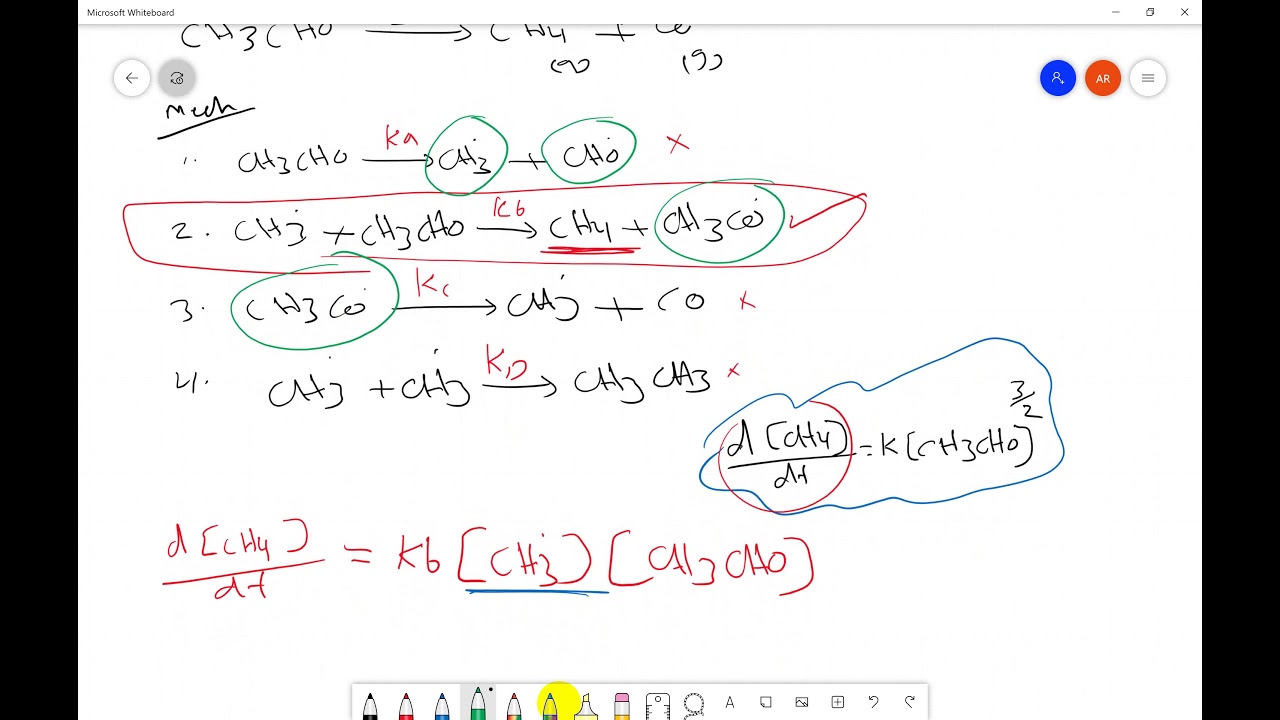 Microsoft Whiteboard
CH3CHO → CH4 + CO
(g) (g)
AR
Mech
1. CH3CHO Ka → CH3˙ + CHO˙ x
2. CH3˙ + CH3CHO Kb → CH4 + CH3CO˙ ✓
3. CH3CO˙ Kc → CH3˙ + CO x
4. CH3˙ + CH3˙ KD → CH3CH3 x
d[CH4]/dt = K[CH3CHO]^3/2
d[CH4]/dt = Kb[CH3˙][CH3CHO]
A